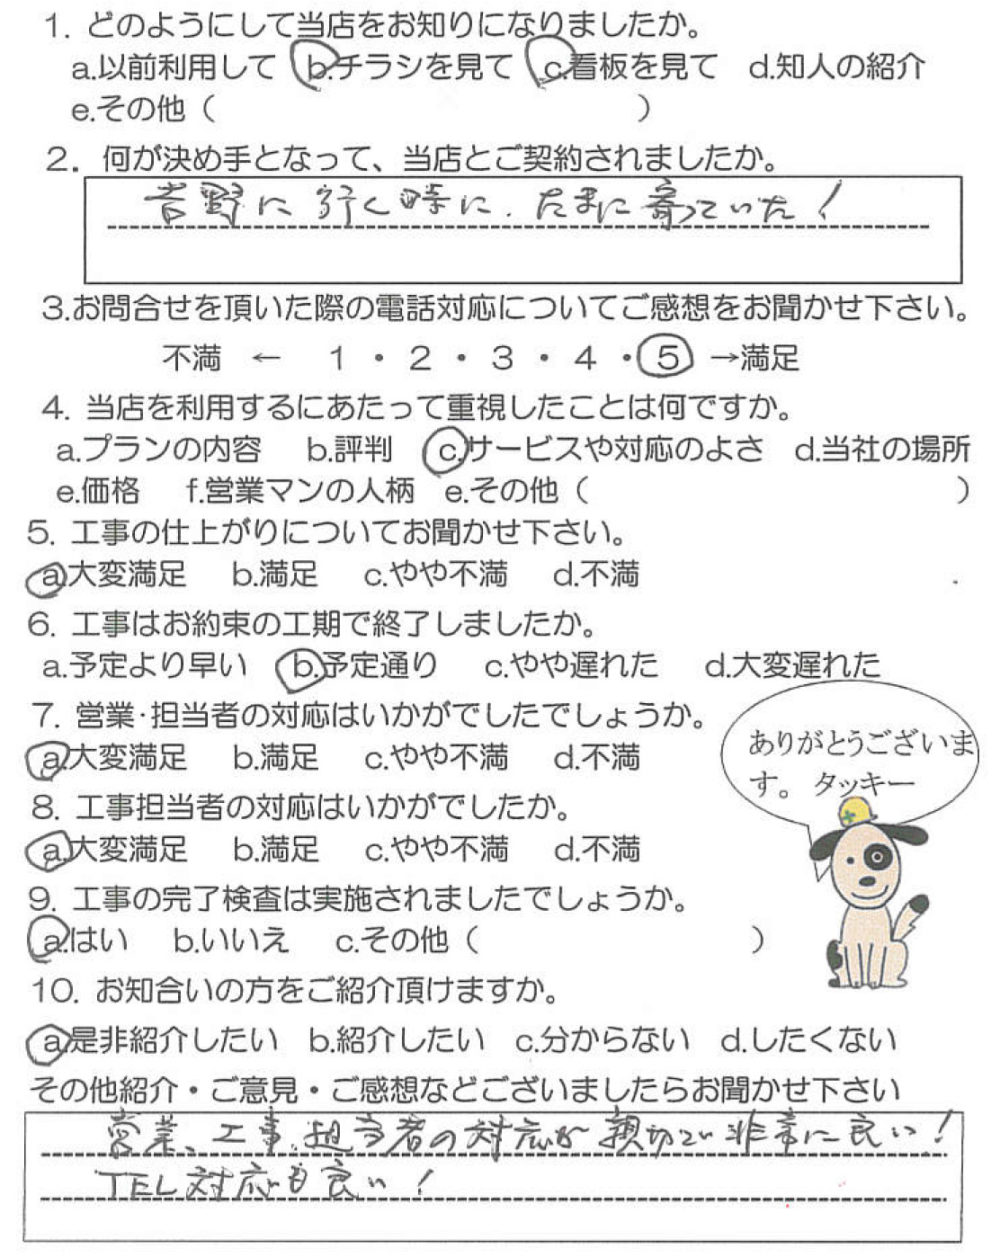 1. どのようにして当店をお知りになりましたか。
a.以前利用して b.チラシを見て c.看板を見て d.知人の紹介
e.その他（ ）
2. 何が決め手となって、当店とご契約されましたか。
吉野に行く時に、たまに寄っていた！
3.お問合せを頂いた際の電話対応についてご感想をお聞かせ下さい。
不満 ← 1 ・ 2 ・ 3 ・ 4 ・ 5 →満足
4. 当店を利用するにあたって重視したことは何ですか。
a.プランの内容 b.評判 c.サービスや対応のよさ d.当社の場所
e.価格 f.営業マンの人柄 e.その他（ ）
5. 工事の仕上がりについてお聞かせ下さい。
a.大変満足 b.満足 c.やや不満 d.不満
6. 工事はお約束の工期で終了しましたか。
a.予定より早い b.予定通り c.やや遅れた d.大変遅れた
7. 営業・担当者の対応はいかがでしたでしょうか。
a.大変満足 b.満足 c.やや不満 d.不満
ありがとうございま
す。タッキー
8. 工事担当者の対応はいかがでしたか。
a.大変満足 b.満足 c.やや不満 d.不満
9. 工事の完了検査は実施されましたでしょうか。
a.はい b.いいえ c.その他（ ）
10. お知合いの方をご紹介頂けますか。
a.是非紹介したい b.紹介したい c.分からない d.したくない
その他紹介・ご意見・ご感想などございましたらお聞かせ下さい
営業、工事、担当者の対応が親切で非常に良い！
TEL対応も良い！